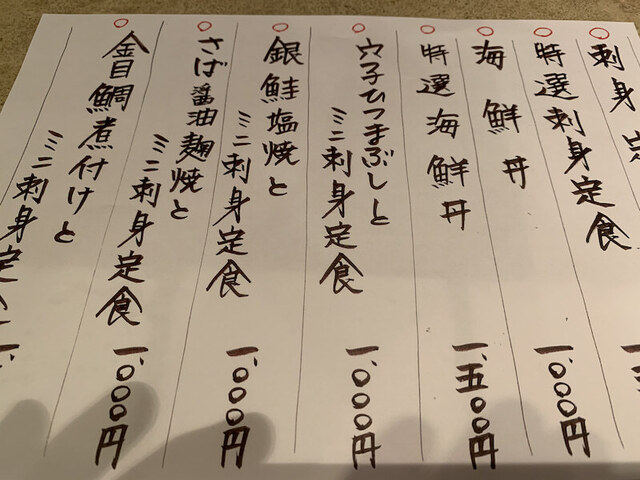 刺身定
特選刺身定食 一、五
海鮮丼 一、〇〇〇円
特選海鮮丼 一、五〇〇円
穴子ひつまぶしと
ミニ刺身定食 一、〇〇〇円
銀鮭塩焼と
ミニ刺身定食 一、〇〇〇円
さば醤油麹焼と
ミニ刺身定食 一、〇〇〇円
金目鯛煮付けと
ミニ刺身定